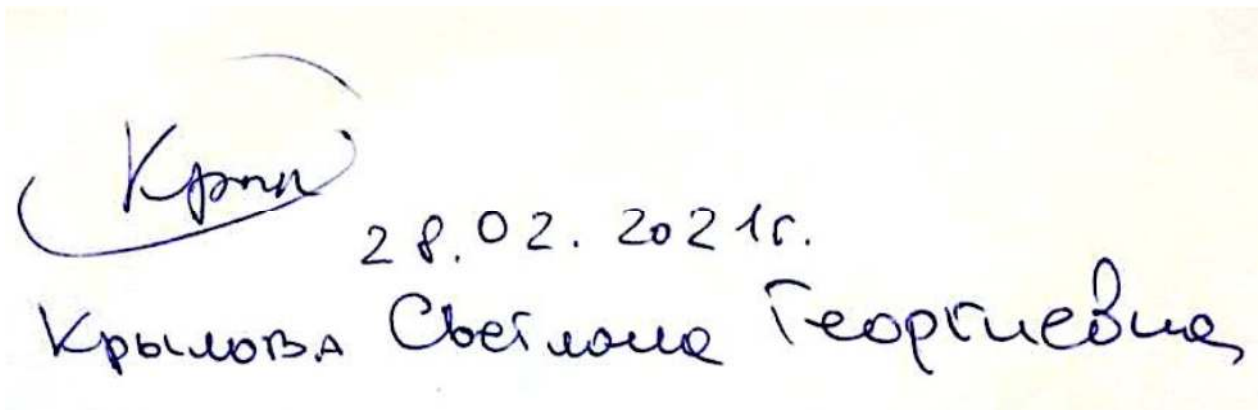 28.02.2021г.
Крылова Светлана Георгиевна